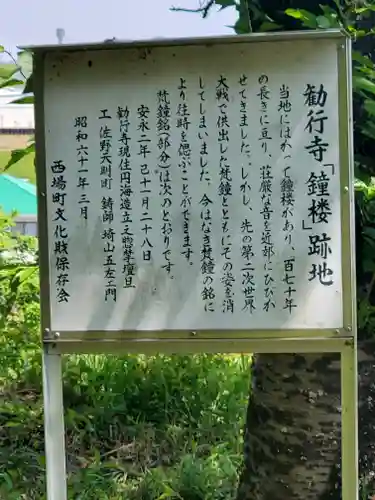 勧行寺「鐘楼」跡地
当地にはかつて鐘楼があり、一百七十年
の長きに亘り、荘厳な音を近郊にひびか
せてきました。しかし、先の第二次世界
大戦で供出した梵鐘とともにその姿を消
してしまいました。今はなき梵鐘の銘に
より往時を偲ぶことができます。
梵鐘銘(部分)は次のとおりです。
安永二年己十一月二十八日
勧行寺現住円海造立之惣挙壇旦
工 佐野天明町 鋳師 埼山五左エ門
昭和六十一年三月
西場町文化財保存会